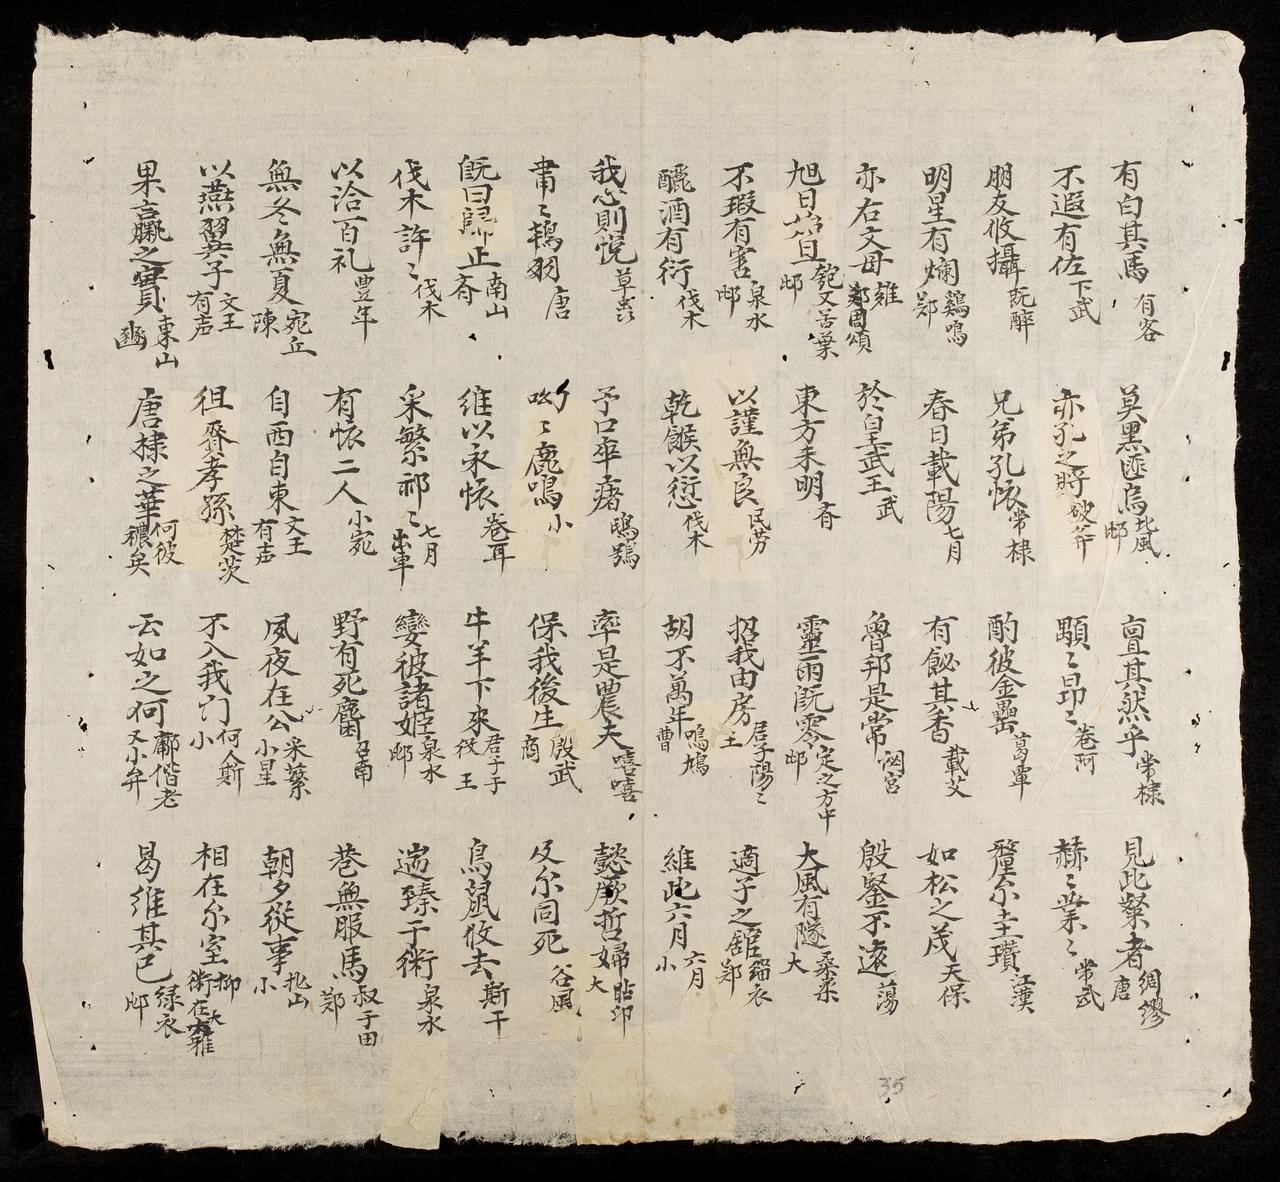 有白其馬 有客 莫黑匪烏 北風 邶 亶其然乎 常棣 見此粲者 綢繆 唐
不遐有佐 下武 亦孔之將 破斧 顒〻昂〻 卷阿 赫〻業〻 常武
朋友攸攝 既醉 兄弟孔懐 常棣 酌彼金罍 葛覃 釐尓圭瓚 江漢
明星有爛 鷄鳴 鄭 春日載陽 七月 有飶其香 載芟 如松之茂 天保
亦右文母 雝 周頌 於皇武王 武 魯邦是常 閟宮 殷鑒不遠 蕩
旭日始旦 匏又苦葉 邶 東方未明 斉 靈雨既零 定之方中 邶 大風有隧 桑柔 大
不瑕有害 泉水 邶 以謹無良 民労 招我由房 君子陽〻 王 適子之舘 緇衣 鄭
釃酒有衍 伐木 乾餱以愆 伐木 胡不萬年 鳴鳩 曹 維此六月 六月 小
我心則悦 草虫 予口卒瘏 鴟鴞 率是農夫 噫嘻 懿厥哲婦 瞻卬 大
肅〻鴇羽 唐 呦〻鹿鳴 小 保我後生 殷武 商 及尓同死 谷風
既曰歸止 南山 斉 維以永懐 卷耳 牛羊下来 君子于役 王 鳥鼠攸去 斯干
伐木許〻 伐木 采繁祁〻 七月 出車 孌彼諸姫 泉水 邶 遄臻于衛 泉水
以洽百礼 豊年 有懐二人 小宛 野有死麕 召南 巷無服馬 叔于田 鄭
無冬無夏 宛丘 陳 自西自東 文王有声 夙夜在公 采蘩 小星 朝夕從事 北山 小
以燕翼子 文王有声 徂賚孝孫 楚茨 不入我門 何人斯 小 相在尓室 抑 衛在大雅
果臝之實 東山 豳 唐棣之華 何彼襛矣 云如之何 鄘偕老 又小弁 曷維其已 緑衣 邶
35